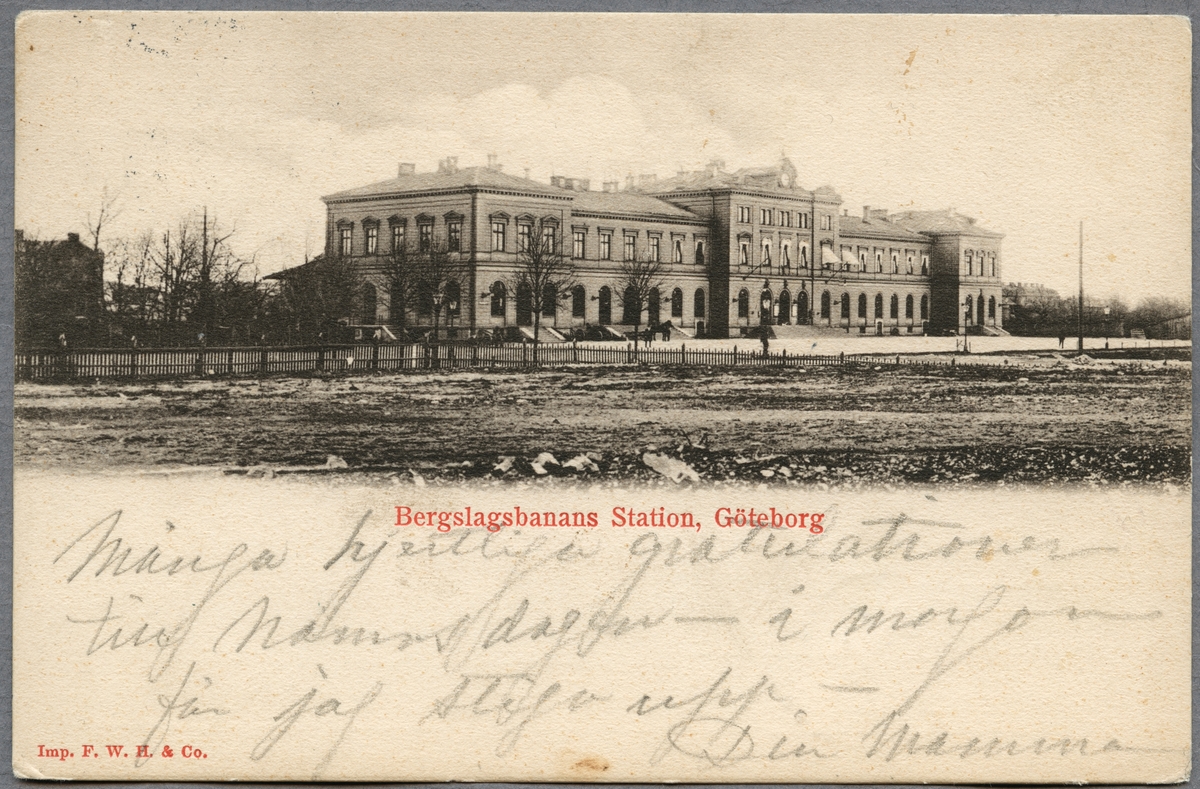 Bergslagsbanans Station, Göteborg
Många hjertliga gratulationer
till Namnsdagen — i morgon
får jag stiga upp —
Din Mamma
Imp. F. W. H. & Co.